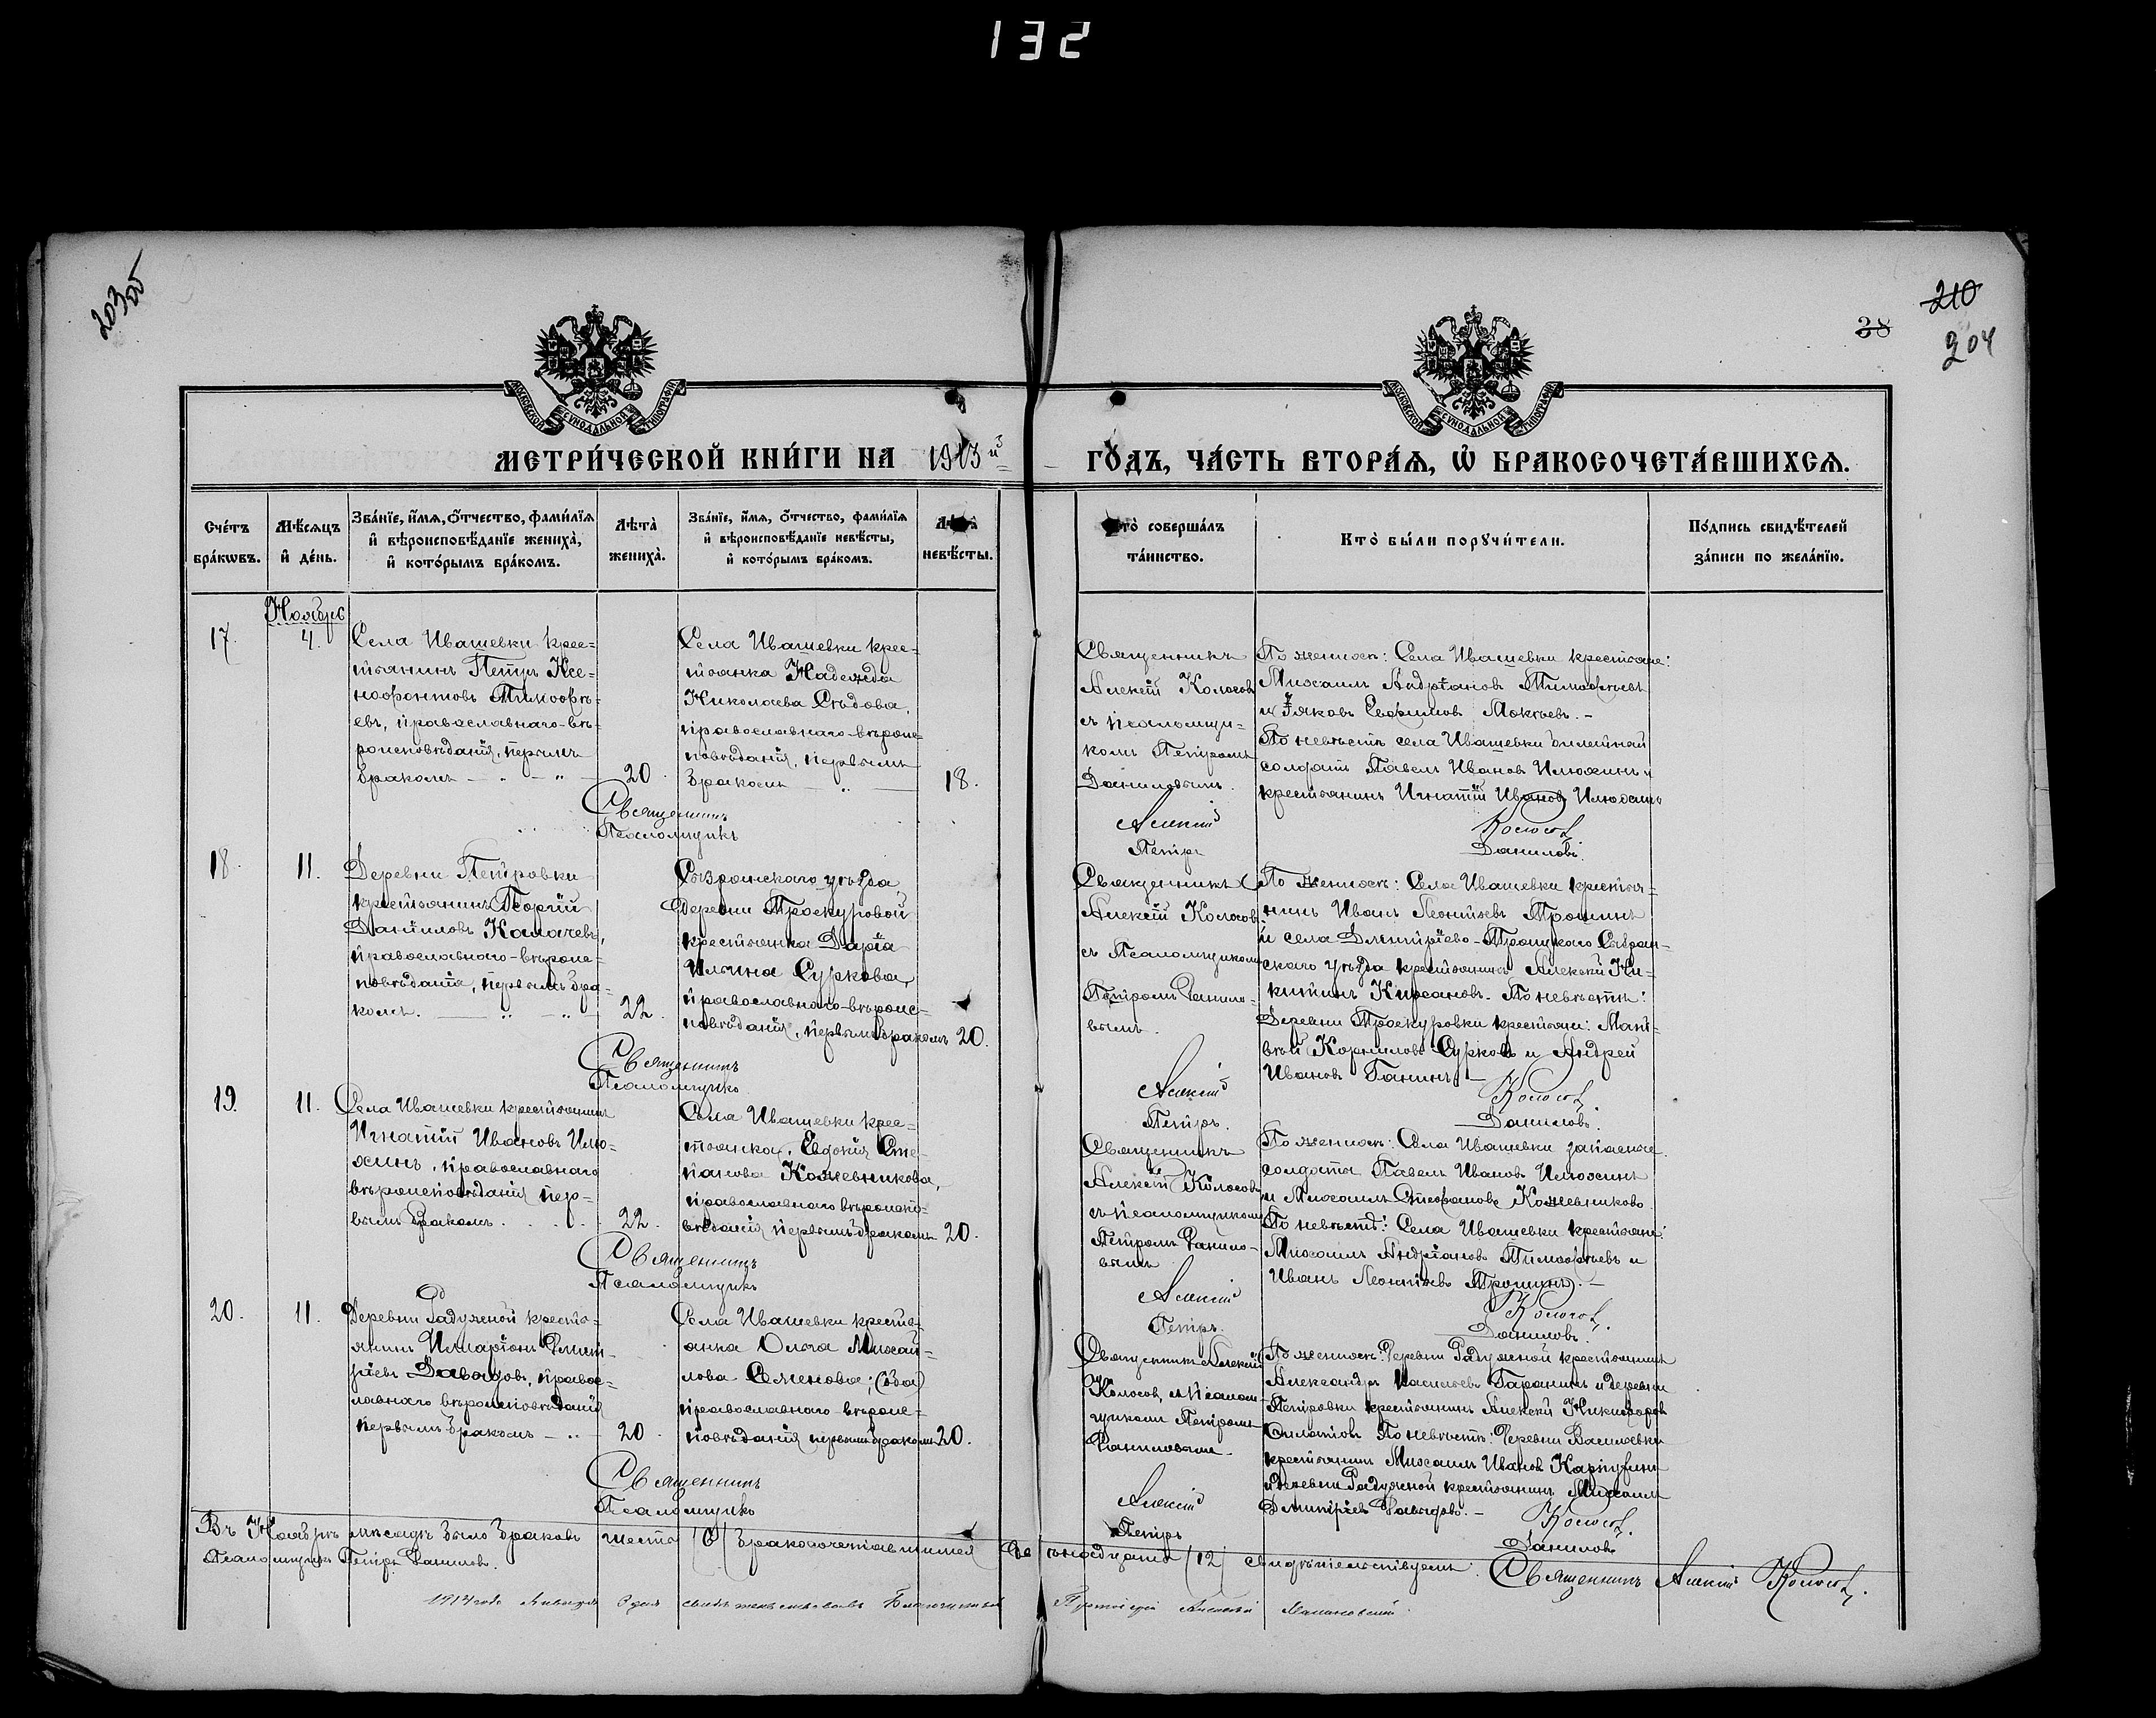 132
203об
210
38
204
МОСКОВСКОЙ СУНОДАЛЬНОЙ ТИПОГРАФІИ
МОСКОВСКОЙ СУНОДАЛЬНОЙ ТИПОГРАФІИ
МЕТРИ́ЧЕСКОЙ КНИ́ГИ НА 1913й ГО́ДЪ, ЧА́СТЬ ВТОРА́Ѧ, Ѡ҆ БРАКОСОЧЕТА́ВШИХСѦ.
Сче́тъ бра́кѡвъ.
Мѣ́сѧцъ и҆ де́нь.
Зва́нїе, и҆́мѧ, ѻ҆́тчество, фами́лїѧ
и҆ вѣроисповѣ́данїе жениха̀,
и҆ кото́рымъ бра́комъ.
Лѣта̀ жениха̀.
Зва́нїе, и҆́мѧ, ѻ҆́тчество, фами́лїѧ
и҆ вѣроисповѣ́данїе невѣ́сты,
и҆ кото́рымъ бра́комъ.
Лѣта̀ невѣ́сты.
Кто̀ соверша́лъ та́инство.
Кто̀ бы́ли порꙋчи́тели.
По́дпись свидѣ́телей за́писи по жела́нїю.
Ноябрь
17.
4.
Села Ивашевки крес=
тьянинъ Петръ Ксе=
нофонтовъ Тимофѣ=
евъ, православнаго вѣ=
роисповѣданія, первымъ
бракомъ
20.
Села Ивашевки крес=
тьянка Надежда
Николаева Сѣдова,
православнаго вѣроис=
повѣданія, первымъ
бракомъ
18.
Священникъ
Алексій Колосовъ
съ псаломщи=
комъ Петромъ
Даниловымъ.
По женихѣ: Села Ивашевки крестьяне:
Михаилъ Андріановъ Тимофѣевъ
и Іяковъ Ефимовъ Мокѣевъ.–
По невѣстѣ села Ивашевки билетный
солдатъ Павелъ Ивановъ Илюхинъ и
крестьянинъ Игнатій Ивановъ Илюхинъ
Священникъ Алексій Колосовъ
Псаломщикъ Петръ Даниловъ.
18.
11.
Деревни Петровки
крестьянинъ Георгій
Даніиловъ Камачевъ,
православнаго вѣроис=
повѣданія, первымъ бра=
комъ.
22.
Сызранскаго уѣзда,
деревни Проскуровой
крестьянка Дарія
Ильина Суркова,
православнаго вѣроис=
повѣданія, первымъ бракомъ
20.
Священникъ
Алексій Колосовъ
съ Псаломщикомъ
Петромъ Данило=
вымъ.
По женихѣ: Села Ивашевки крестья=
нинъ Иванъ Леонтьевъ Трошинъ
и села Дмитріево-Троицкаго Сызран=
скаго уѣзда крестьянинъ Алексѣй Ни=
китинъ Кирсановъ. По невѣстѣ:
Деревни Проскуровки крестьяне: Мат=
вѣй Корниловъ Сурковъ и Андрей
Ивановъ Ганинъ.–
Священникъ Алексій Колосовъ
Псаломщикъ Петръ. Даниловъ.
19.
11.
Села Ивашевки крестьянинъ
Игнатій Ивановъ Илю=
хинъ, православнаго
вѣроисповѣданія пер=
вымъ бракомъ.
22.
Села Ивашевки крес=
тьянка, Евдокія Сте=
панова Кожевникова,
православнаго вѣроиспо=
вѣданія первымъ бракомъ
20.
Священникъ
Алексій Колосовъ
съ псаломщикомъ
Петромъ Данило=
вымъ
По женихѣ: Села Ивашевки запасные
солдаты Павелъ Ивановъ Илюхинъ
и Михаилъ Стефановъ Кожевниковъ
По невѣстѣ: Села Ивашевки крестьяне:
Михаилъ Андріановъ Тимофѣевъ и
Иванъ Леонтьевъ Трошинъ.–
Священникъ Алексій Колосовъ.
Псаломщикъ Петръ. Даниловъ.
20.
11.
Деревни Радужной кресть=
янинъ Иларіонъ Димит=
ріевъ Давыдовъ, правос=
лавнаго вѣроисповѣданія
первымъ бракомъ
20.
Села Ивашевки кресть=
янка Ольга Михай=
лова Семенова; (оба)
православнаго вѣроис=
повѣданія первымъ бракомъ
20.
Священникъ Алексій
Колосовъ, съ псалом=
щикомъ Петромъ
Даниловымъ.
По женихѣ: Деревни Радужной крестьянинъ
Александръ Васильевъ Гаранинъ и деревни
Петровки крестьянинъ Алексѣй Никифоровъ
Филатовъ По невѣстѣ: Деревни Васильевки
крестьянинъ Михаилъ Ивановъ
и деревни Радужной крестьянинъ Михаилъ
Димитріевъ Давыдовъ.–
Священникъ Алексій Колосовъ.
Псаломщикъ Петръ Даниловъ
Въ Ноябрѣ мѣсяцѣ было браковъ шесть (6) бракосочетавшихся двѣнадцать (12) свидѣтельствуемъ: Священникъ Алексій Колосовъ.
Псаломщикъ Петръ Даниловъ.
1914 года Января дня свидѣтельствовалъ Благочинный Протоіерей Алексій